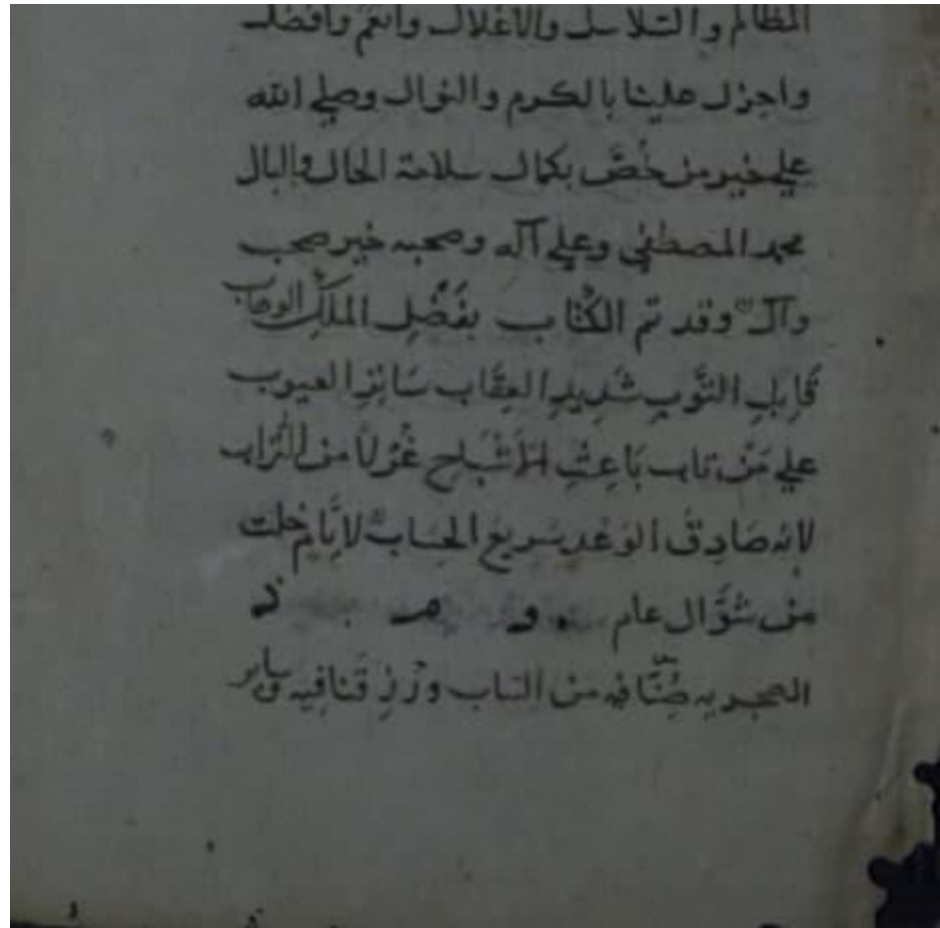 المظالم والسلاسل والاغلال وانعم وافضل
واجزل علينا بالكرم والنوال وصلي الله
علي خير من خُصَّ بكمال سلامة الحال والبال
محمد المصطفي وعلي آله وصحبه خير صحب
وآل وقد تم الكتاب بفَضْلِ الملكِ الوهاب
قَابِلِ التَّوبِ شَدِيدِ العِقَاب سَاتِرِ العيوب
علي مَنْ تاب بَاعِثِ الاَشْبَاحِ غُرْلاً من التُّرَاب
لانه صَادِقُ الوَعْد سَرِيعُ الحساب لايَّامٍ خلت
من شَوَّال عام
من الباب